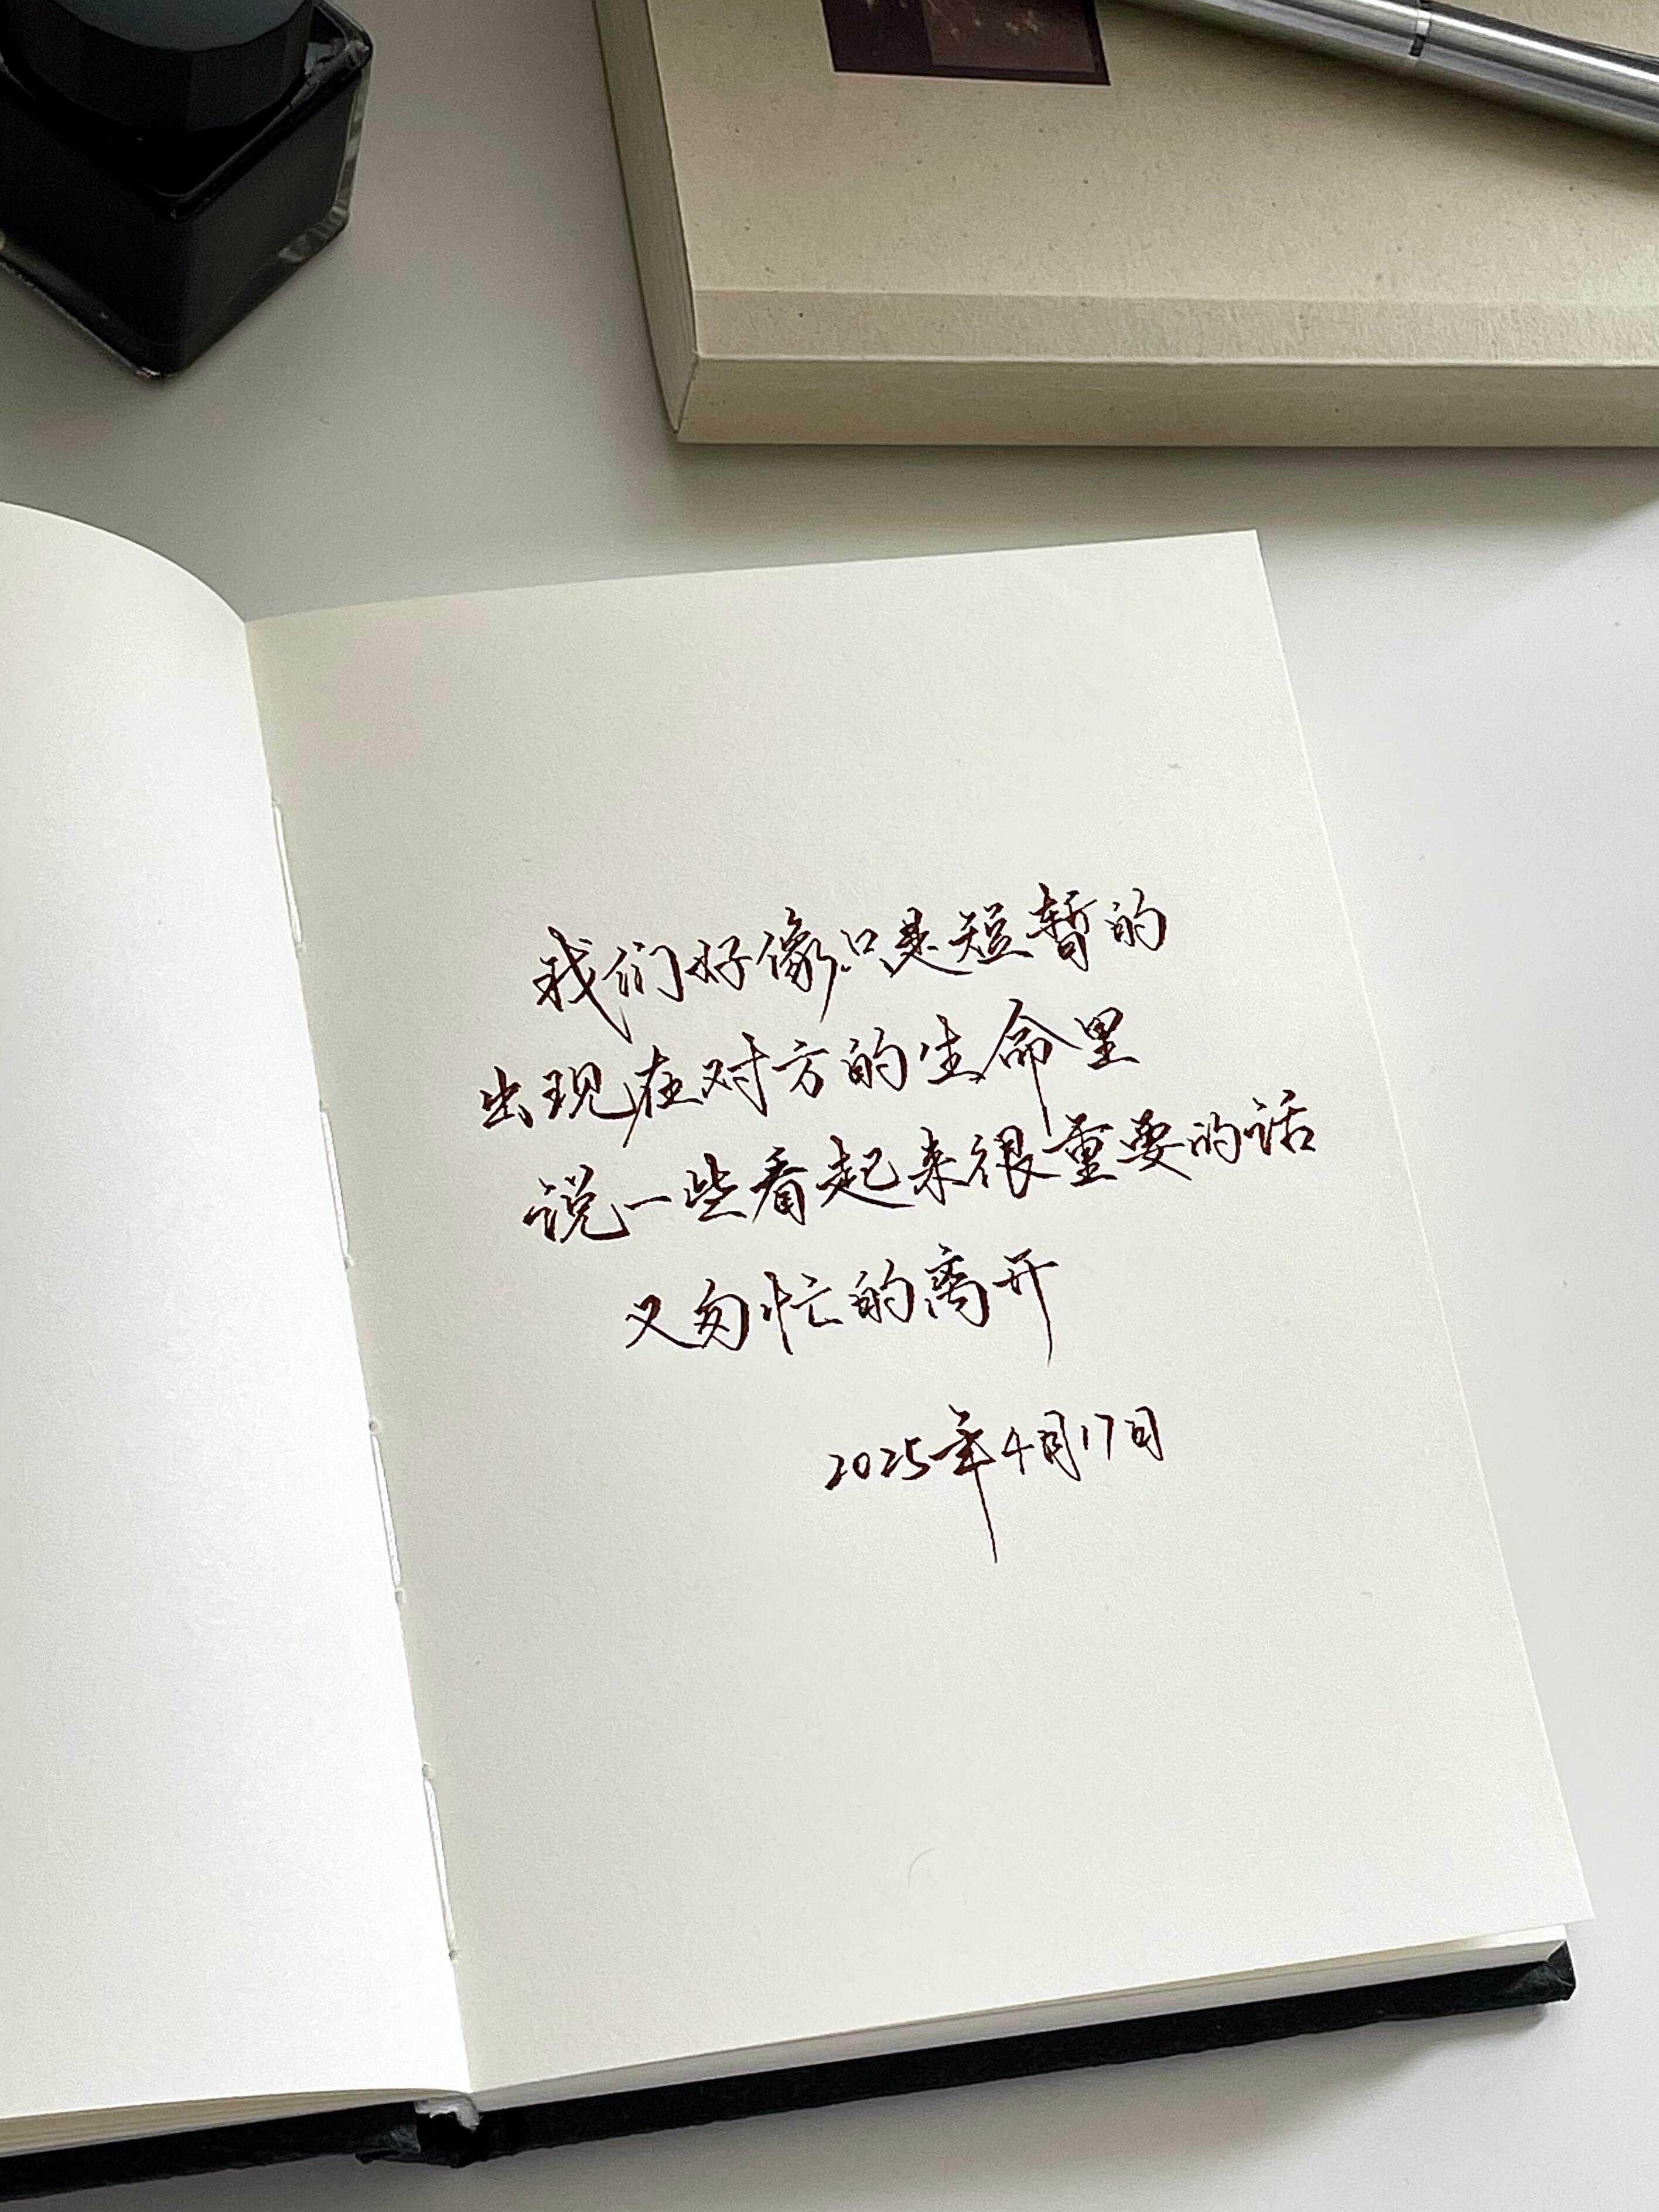 我们好像只是短暂的
出现在对方的生命里
说一些看起来很重要的话
又匆忙的离开
2025年4月17日